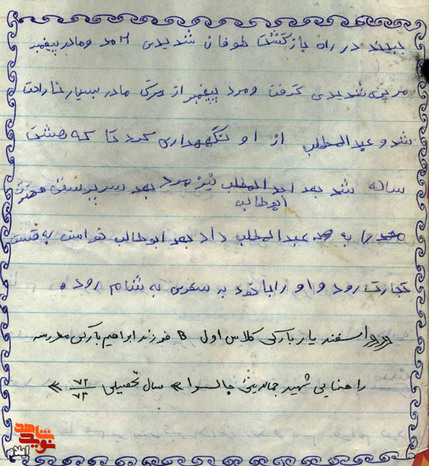 ببیند در راه بازگشت طوفان شدیدی آمد و مادر پیغمبر
مریضی شدیدی گرفت و مرد پیغمبر از مرگ مادر بسیار ناراحت
شد و عبدالمطلب از او نگهداری کرد تا که هشت
ساله شد بعد عبدالمطلب نیز مرد بعد سرپرستی
ابوطالب
را به عبدالمطلب داد بعد ابوطالب خواست به
تجارت رود و او را با خود به سفری به شام رود .
اسفندیار بارکی کلاس اول B فرزند ابراهیم بارکی مدرسه
راهنمایی شهید جمالدینی » سال تحصیلی ۷۲/۷۳ »
شاهد
نوید
ایلام